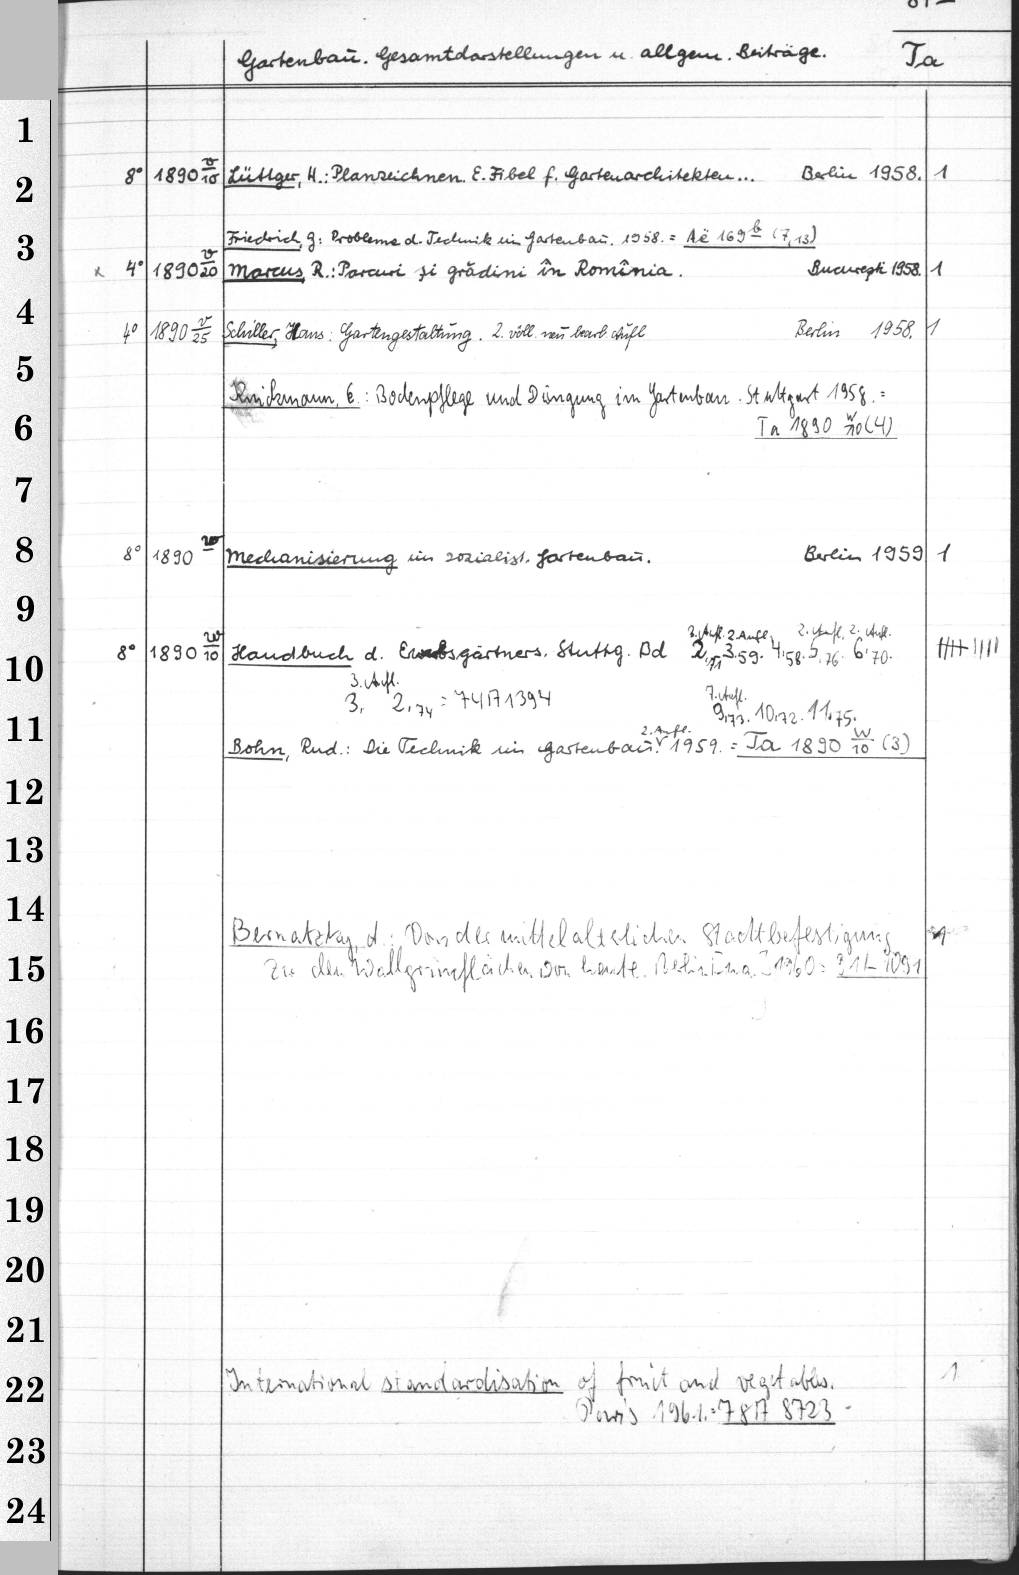 Gartenbau. Gesamtdarstellungen u. allgem. Beiträge. Ta
1
2
3
4
5
6
7
8
9
10
11
12
13
14
15
16
17
18
19
20
21
22
23
24
8° 1890 v/10 Lüttger, H.: Planzeichnen. E. Fibel f. Gartenarchitekten... Berlin 1958. 1
Friedrich, G: Probleme d. Technik im Gartenbau. 1958. = Aë 169 b (7,13)
x 4° 1890 v/20 Marcus, R.: Parcuri și grădini în Romînia. București 1958. 1
4° 1890 v/25 Schiller, Hans: Gartengestaltung. 2. völl. neu bearb. Aufl Berlin 1958. 1
Knickmann, E.: Bodenpflege und Düngung im Gartenbau. Stuttgart 1958. =
Ta 1890 w/10 (4)
8° 1890 w Mechanisierung im sozialist. Gartenbau. Berlin 1959 1
3. Aufl. 2. Aufl. 2. Aufl. 2. Aufl.
8° 1890 w/10 Handbuch d. Erwerbsgärtners. Stuttg. Bd 2,71 3.59. 4,58. 5,76. 6,70.
3. Aufl. 7. Aufl.
3, 2,74 = 74 A 1394 9,73. 10,72. 11,75.
2. Aufl.
Bohn, Rud.: Die Technik im Gartenbau. 1959. = Ta 1890 w/10 (3)
Bernatzky, A.: Von der mittelalterlichen Stadtbefestigung
zu den Wallgrünflächen von heute. Berlin 1960 =
International standardisation of fruit and vegetables. 1
Paris 1961. = 78 A 8723